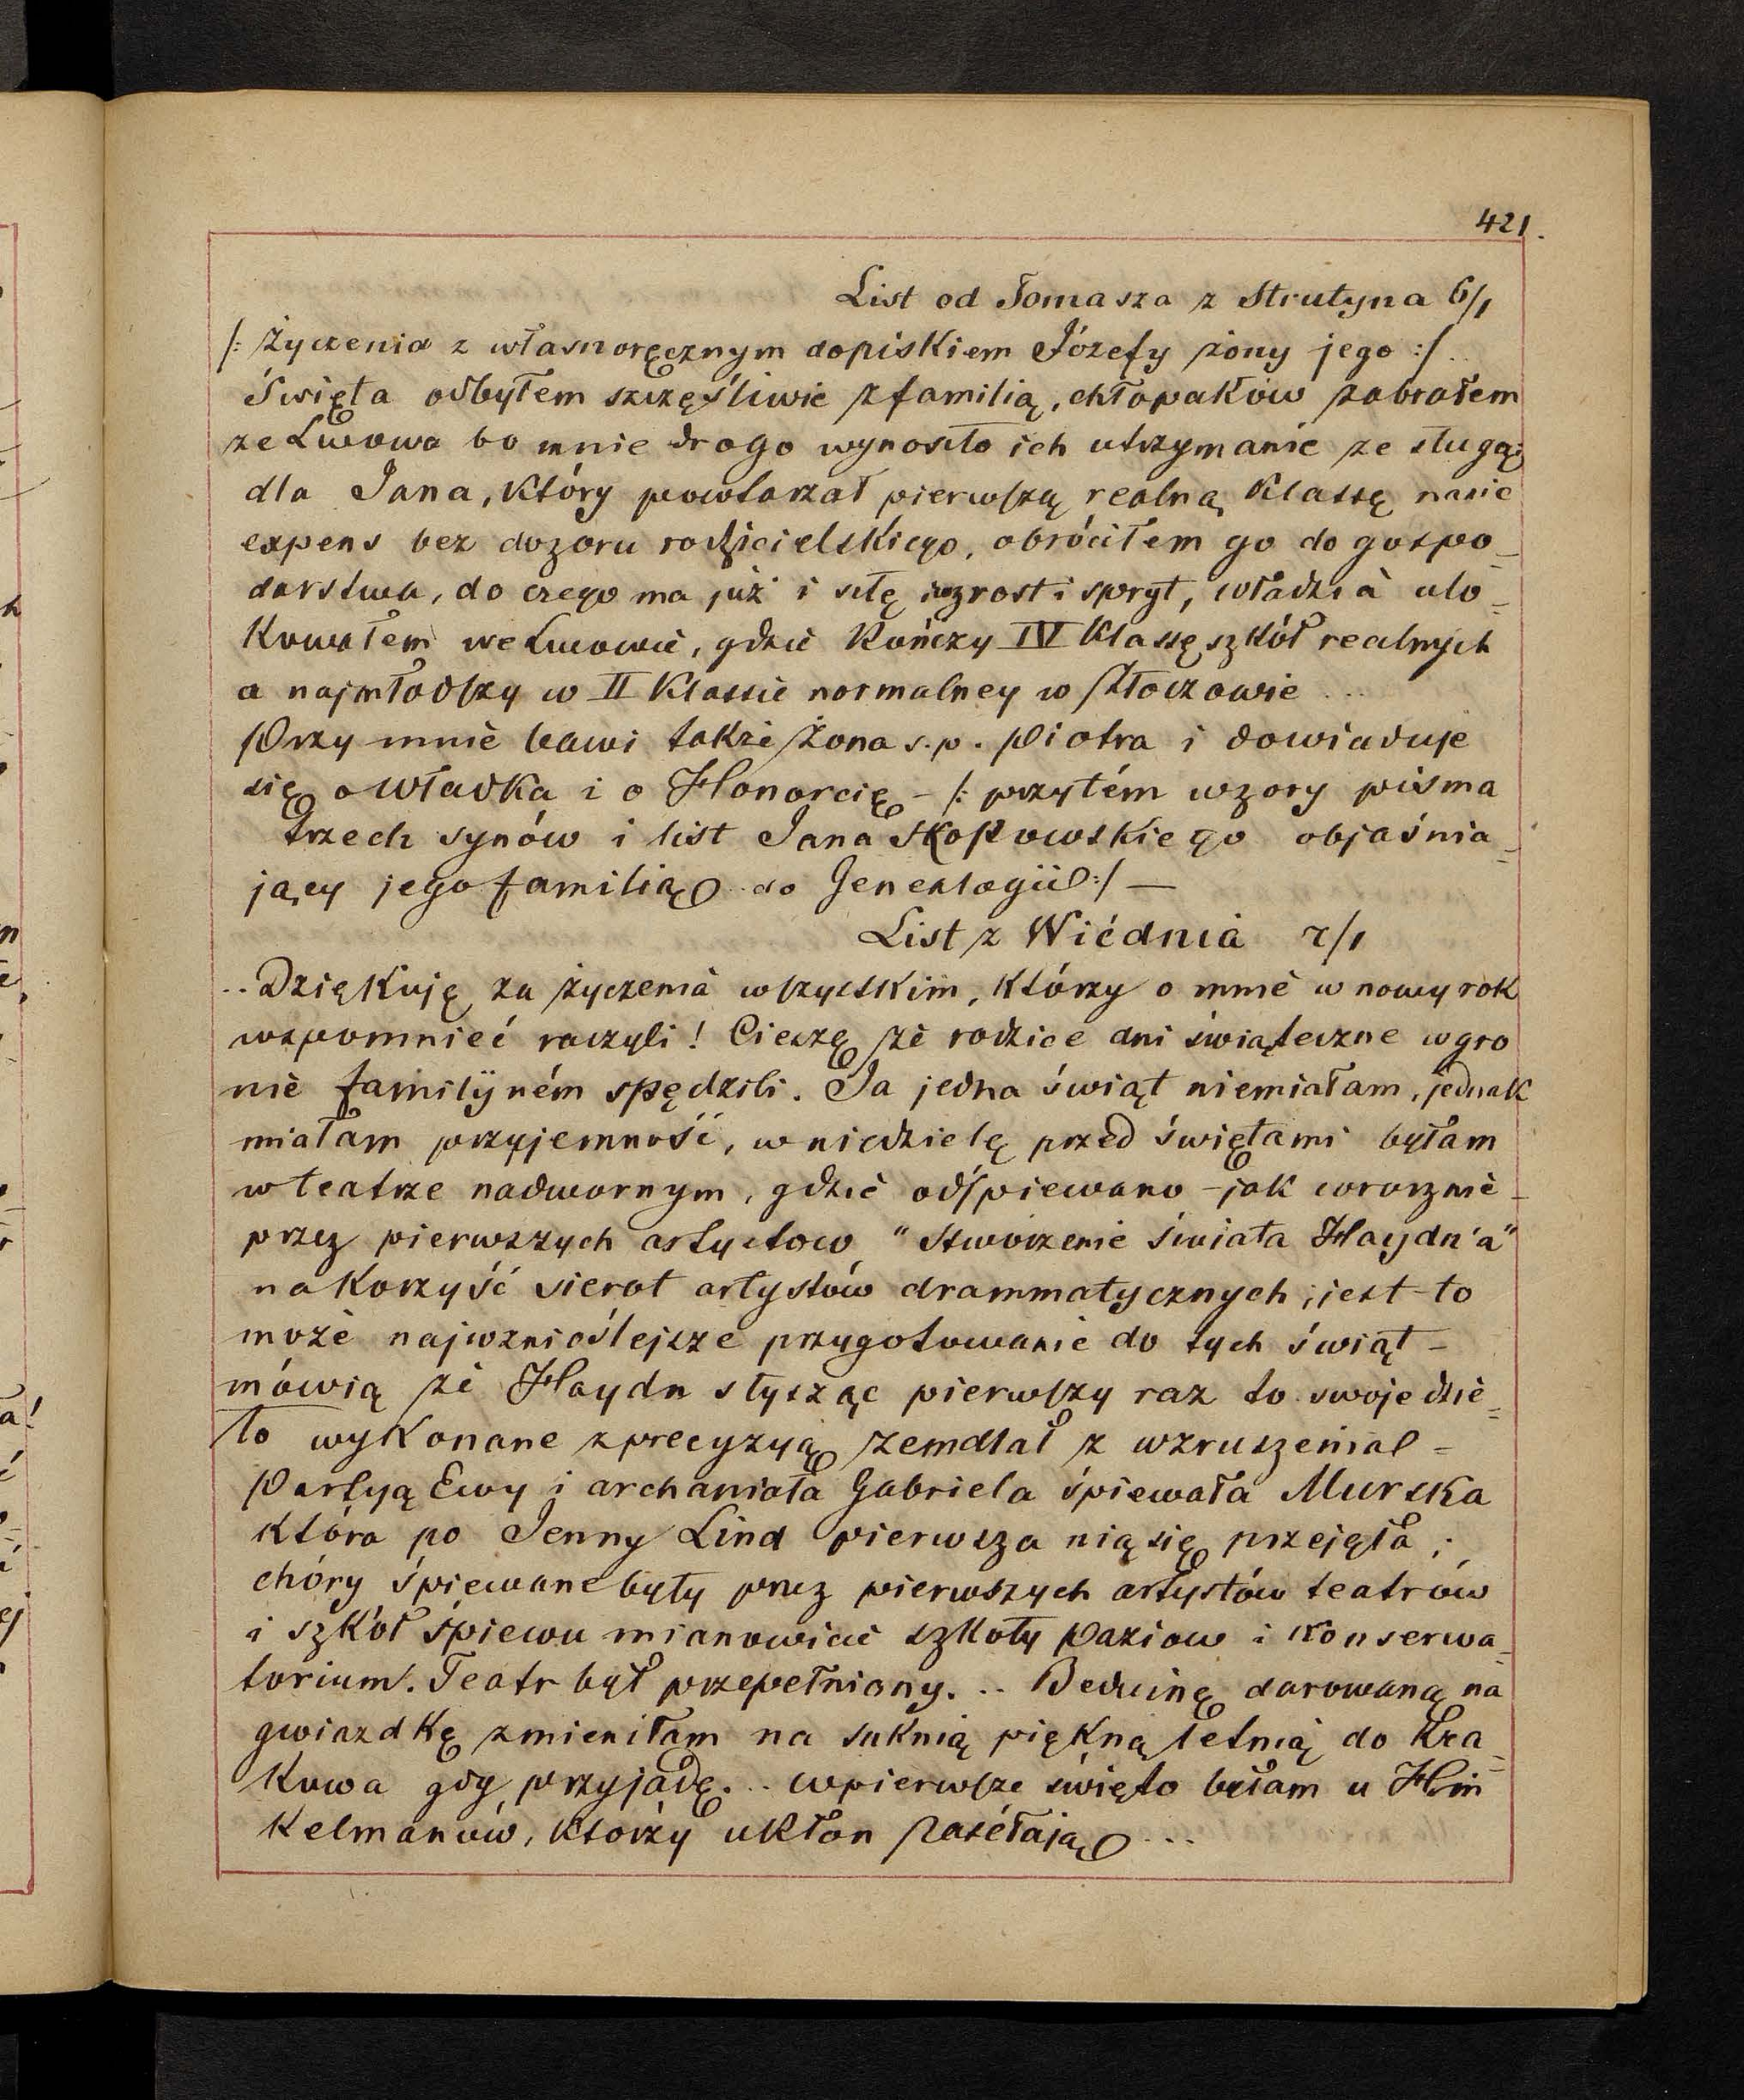 421.
List od Tomasza z Strutyna 6/1
/: Życzenia z własnoręcznym dopiskiem Józefy żony jego :/ ..
Święta odbyłem szczęśliwie z familią, chłopaków zabrałem
ze Lwowa bo mnie drogo wynosiło ich utrzymanie ze sługą;
dla Jana, który powtarzał pierwszą realną klassę na nic
expens bez dozoru rodzicielskiego, obróciłem go do gospo_
darstwa, do czego ma już i siłę wzrost i spryt, Władzia ulo=
kowałem we Lwowie, gdzie kończy IV Klassę szkół realnych
a najmłodszy w II Klassie normalney w Złoczowie ...
Przy mnie bawi także żona s.p. Piotra i dowiaduje
się o Władka i o Honorcię - /: przytém wzory pisma
trzech synów i list Jana Skopowskiego objaśnia=
jący jego familią do Genealogii :/ —
List z Wiédnia 7/1
.. Dziękuję za życzenia wszystkim, którzy o mnie w nowy rok
wspomnieć raczyli! Cieszę że rodzice dni świąteczne w gro
nie familijném spędzili. Ja jedna świąt niemiałam, jednak
miałam przyjemność, w niedzielę przed świętami byłam
w teatrze nadwornym, gdzie odśpiewano - jak corocznie -
przez pierwszych artystow "Stworzenie świata Haydn'a"
na korzyść sierot artystów drammatycznych; jest to
może najwznioślejsze przygotowanie do tych świąt -
mówią że Haydn słysząc pierwszy raz to swoje dzie=
ło wykonane z precyzyą zemdlał z wzruszenia -
Partyą Ewy i archanioła Gabriela śpiewała Murska
która po Jenny Lind pierwsza nią się przejęła;
chóry śpiewane były przez pierwszych artystów teatrów
i szkół śpiewu mianowicie szkoły Paziow i konserwa=
torium. Teatr był przepełniony. .. Beduinę darowaną na
gwiazdkę zmieniłam na suknią piękną letnią do Kra=
kowa gdy przyjadę... w pierwsze święto byłam u Hin
kelmanów, którzy ukłon zasełają ...